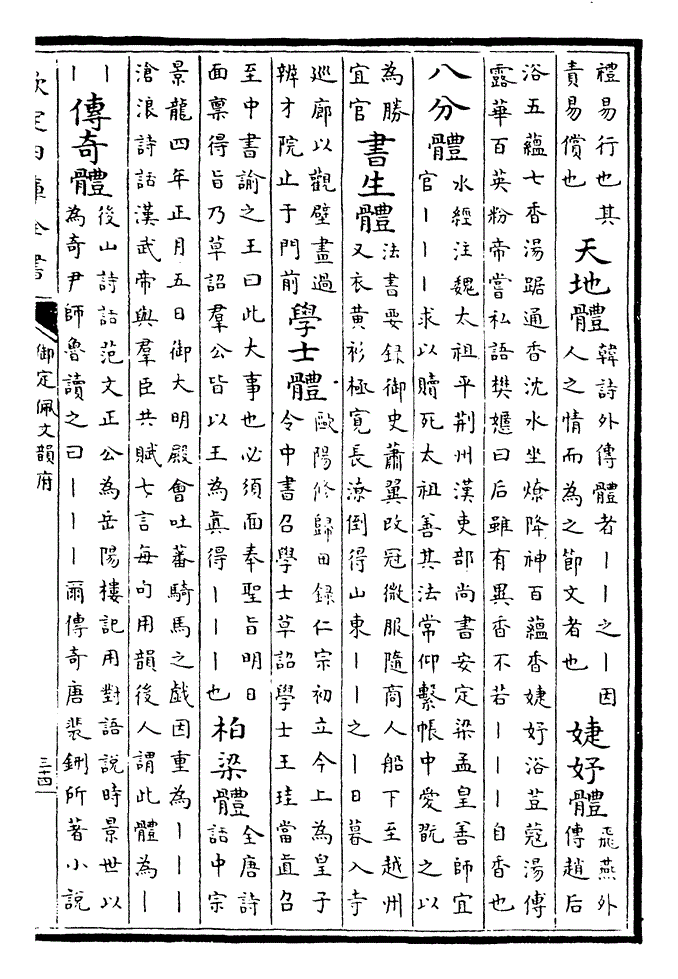 禮易行也其
責易償也
天地體
韓詩外傳體者丨丨之丨因
人之情而為之節文者也
婕妤體
飛燕外
傳趙后
浴五藴七香湯踞通香沈水坐燎降神百藴香婕妤浴荳蔻湯傅
露華百英粉帝嘗私語樊嬺曰后雖有異香不若丨丨丨自香也
八分體
水經注魏太祖平荆州漢吏部尚書安定梁孟皇善師宜
官丨丨丨求以贖死太祖善其法常仰繫帳中愛翫之以
為勝
宜官
書生體
法書要録御史蕭翼改冠微服隨商人船下至越州
又衣黄衫極寛長潦倒得山東丨丨之丨日暮入寺
巡廊以觀壁畫過
辨才院止于門前
學士體
歐陽修歸田録仁宗初立今上為皇子
令中書召學士草詔學士王珪當直召
至中書諭之王曰此大事也必須面奉聖旨明日
面禀得旨乃草詔羣公皆以王為真得丨丨丨也
柏梁體
全唐詩
話中宗
景龍四年正月五日御大明殿會吐蕃騎馬之戲因重為丨丨丨
滄浪詩話漢武帝與羣臣共賦七言每句用韻後人謂此體為丨
丨
丨
傳奇體
後山詩話范文正公為岳陽樓記用對語說時景世以
為奇尹師魯讀之曰丨丨丨爾傳奇唐裴鉶所著小說
欽定四庫全書
御定佩文韻府
三十四